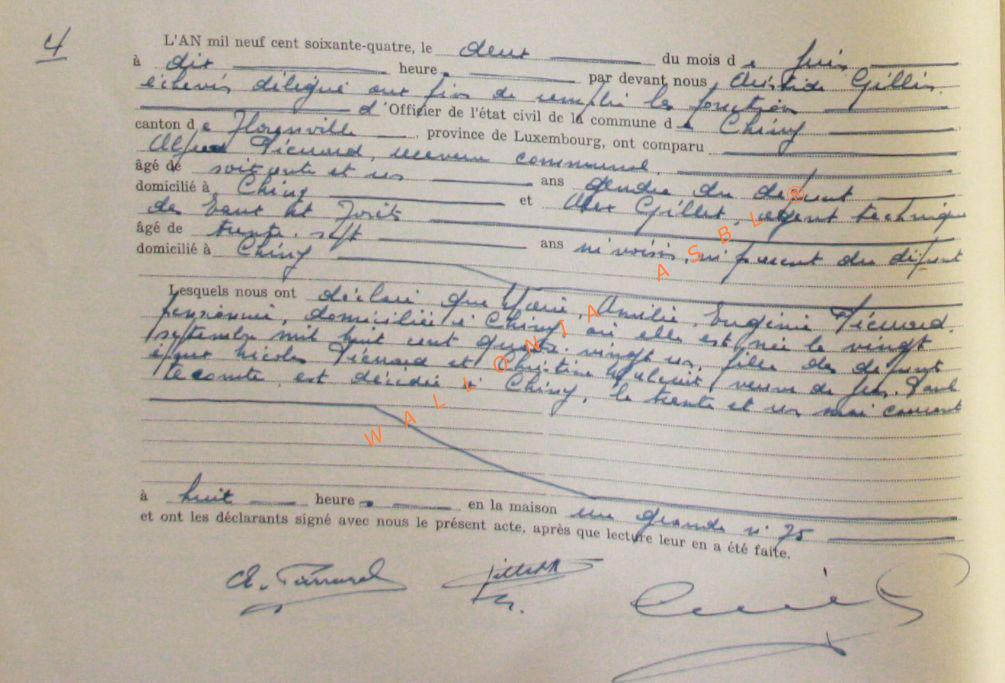 4
L'AN mil neuf cent soixante-quatre, le deux du mois de juin
à dix heures par devant nous Aristide Gillin,
échevin délégué aux fins de remplir les fonctions
d'Officier de l'état civil de la commune de Chiny
canton de Florenville, province de Luxembourg, ont comparu
Alfred receveur communal
âgé de soixante et un ans gendre du défunt
domicilié à Chiny et Alex Gillet, agent technique
des Eaux et Forêts
âgé de trente-sept ans ni voisin, ni parent du défunt
domicilié à Chiny
Lesquels nous ont déclaré que Marie, Amélie, Eugénie
pensionnée, domiciliée à Chiny où elle est née le vingt
septembre mil huit cent quatre-vingt un, fille des défunts
époux Nicolas et Christine veuve de feu Paul
Lecomte, est décédée à Chiny, le trente et un mai courant
à huit heures en la maison rue grande n° 75
et ont les déclarants signé avec nous le présent acte, après que lecture leur en a été faite.
WALLONIA ASBL ®